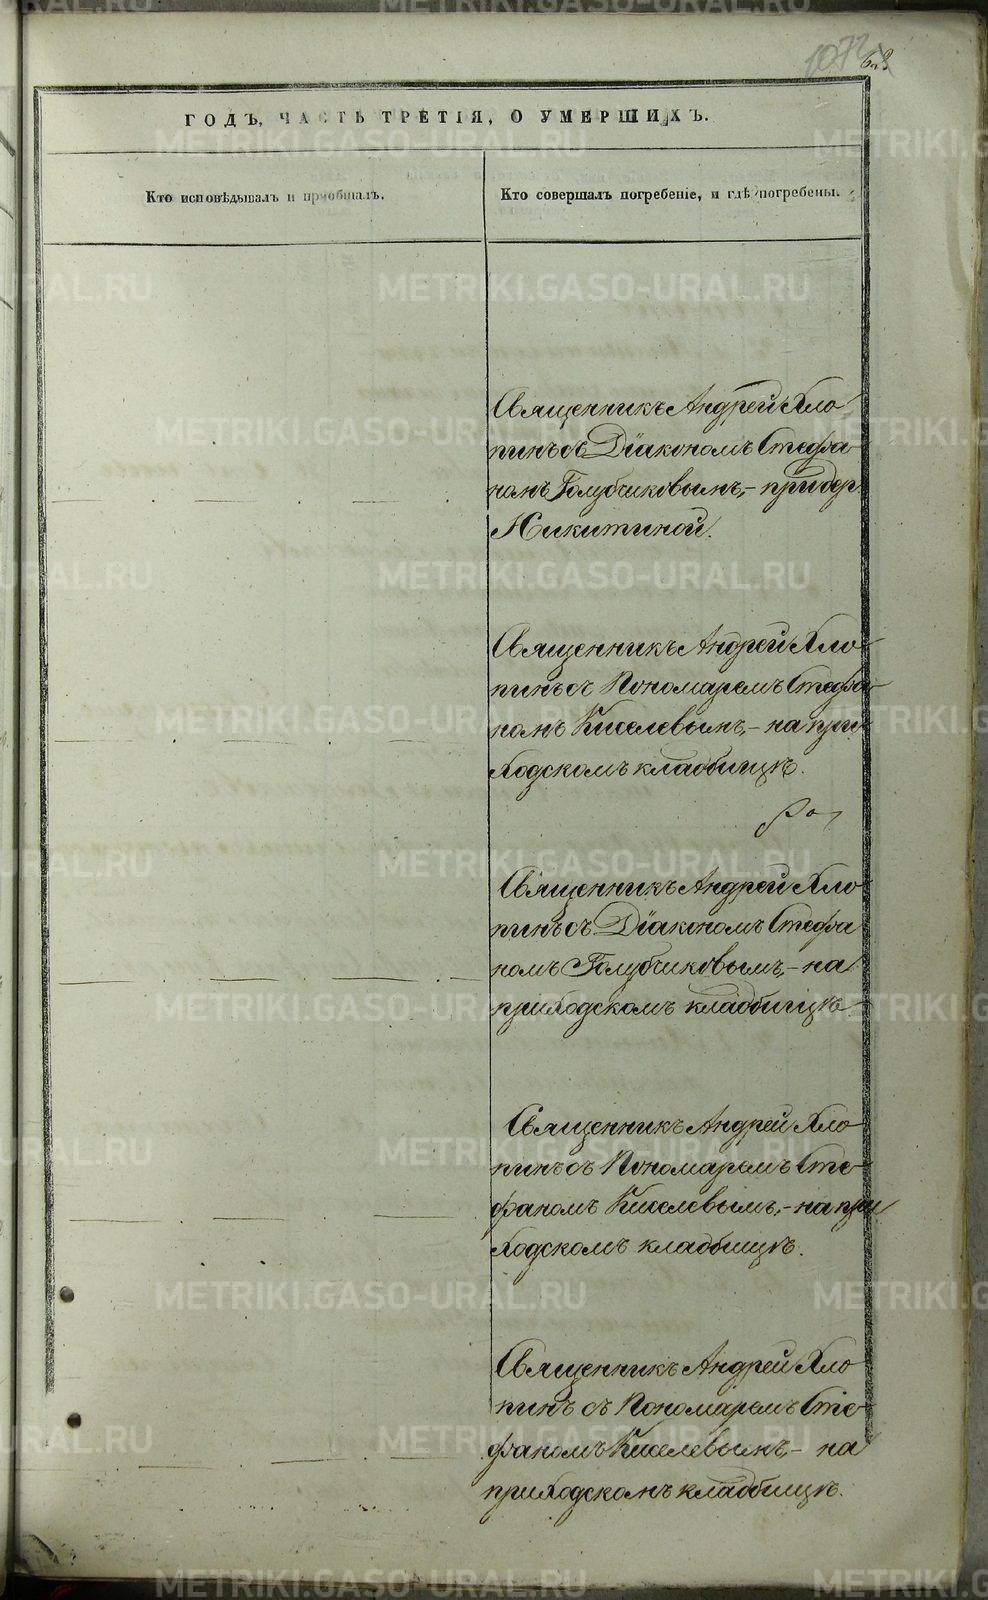 1072
ГОДЪ, ЧАСТЬ ТРЕТІЯ, О УМЕРШИХЪ.
Кто исповѣдывалъ и пріобщалъ.
Кто совершалъ погребеніе, и гдѣ погребены.
Священникъ Андрей Хло
пинъ съ Діакономъ Стефа
номъ Голубчиковымъ,- при дер.
Никитиной.
Священникъ Андрей Хло
пинъ съ Пономаремъ Стефа
номъ Киселевымъ,- на при
ходскомъ кладбищѣ.
Священникъ Андрей Хло
пинъ съ Діакономъ Стефа
номъ Голубчиковымъ,- на
приходскомъ кладбищѣ.
Священникъ Андрей Хло
пинъ съ Пономаремъ Сте
фаномъ Киселевымъ,- на при
ходскомъ кладбищѣ.
Священникъ Андрей Хло
пинъ съ Пономаремъ Сте
фаномъ Киселевымъ,- на
приходскомъ кладбищѣ.
METRIKI.GASO-URAL.RU